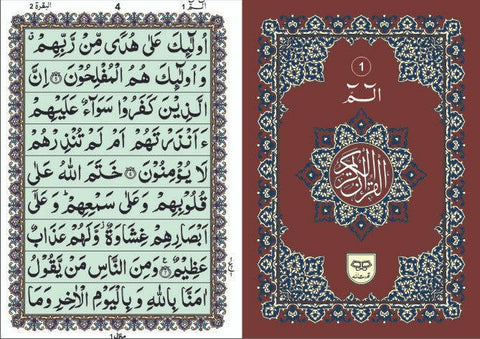 البقرة ٢
4
الٓمّٓ ١
اُولٰٓئِكَ عَلٰى هُدًى مِّنْ رَّبِّهِمْ ۗ
وَ اُولٰٓئِكَ هُمُ الْمُفْلِحُوْنَ ۝ اِنَّ
الَّذِيْنَ كَفَرُوْا سَوَآءٌ عَلَيْهِمْ
ءَاَنْذَرْتَهُمْ اَمْ لَمْ تُنْذِرْهُمْ
لَا يُؤْمِنُوْنَ ۝ خَتَمَ اللّٰهُ عَلٰى
قُلُوْبِهِمْ وَعَلٰى سَمْعِهِمْ ؕ وَعَلٰٓى
اَبْصَارِهِمْ غِشَاوَةٌ ؗ وَّلَهُمْ عَذَابٌ
عَظِيْمٌ ۝ وَمِنَ النَّاسِ مَنْ يَّقُوْلُ
اٰمَنَّا بِاللّٰهِ وَ بِالْيَوْمِ الْاٰخِرِ وَمَا
منزل ١
1
الٓمّٓ
القرآن الكريم